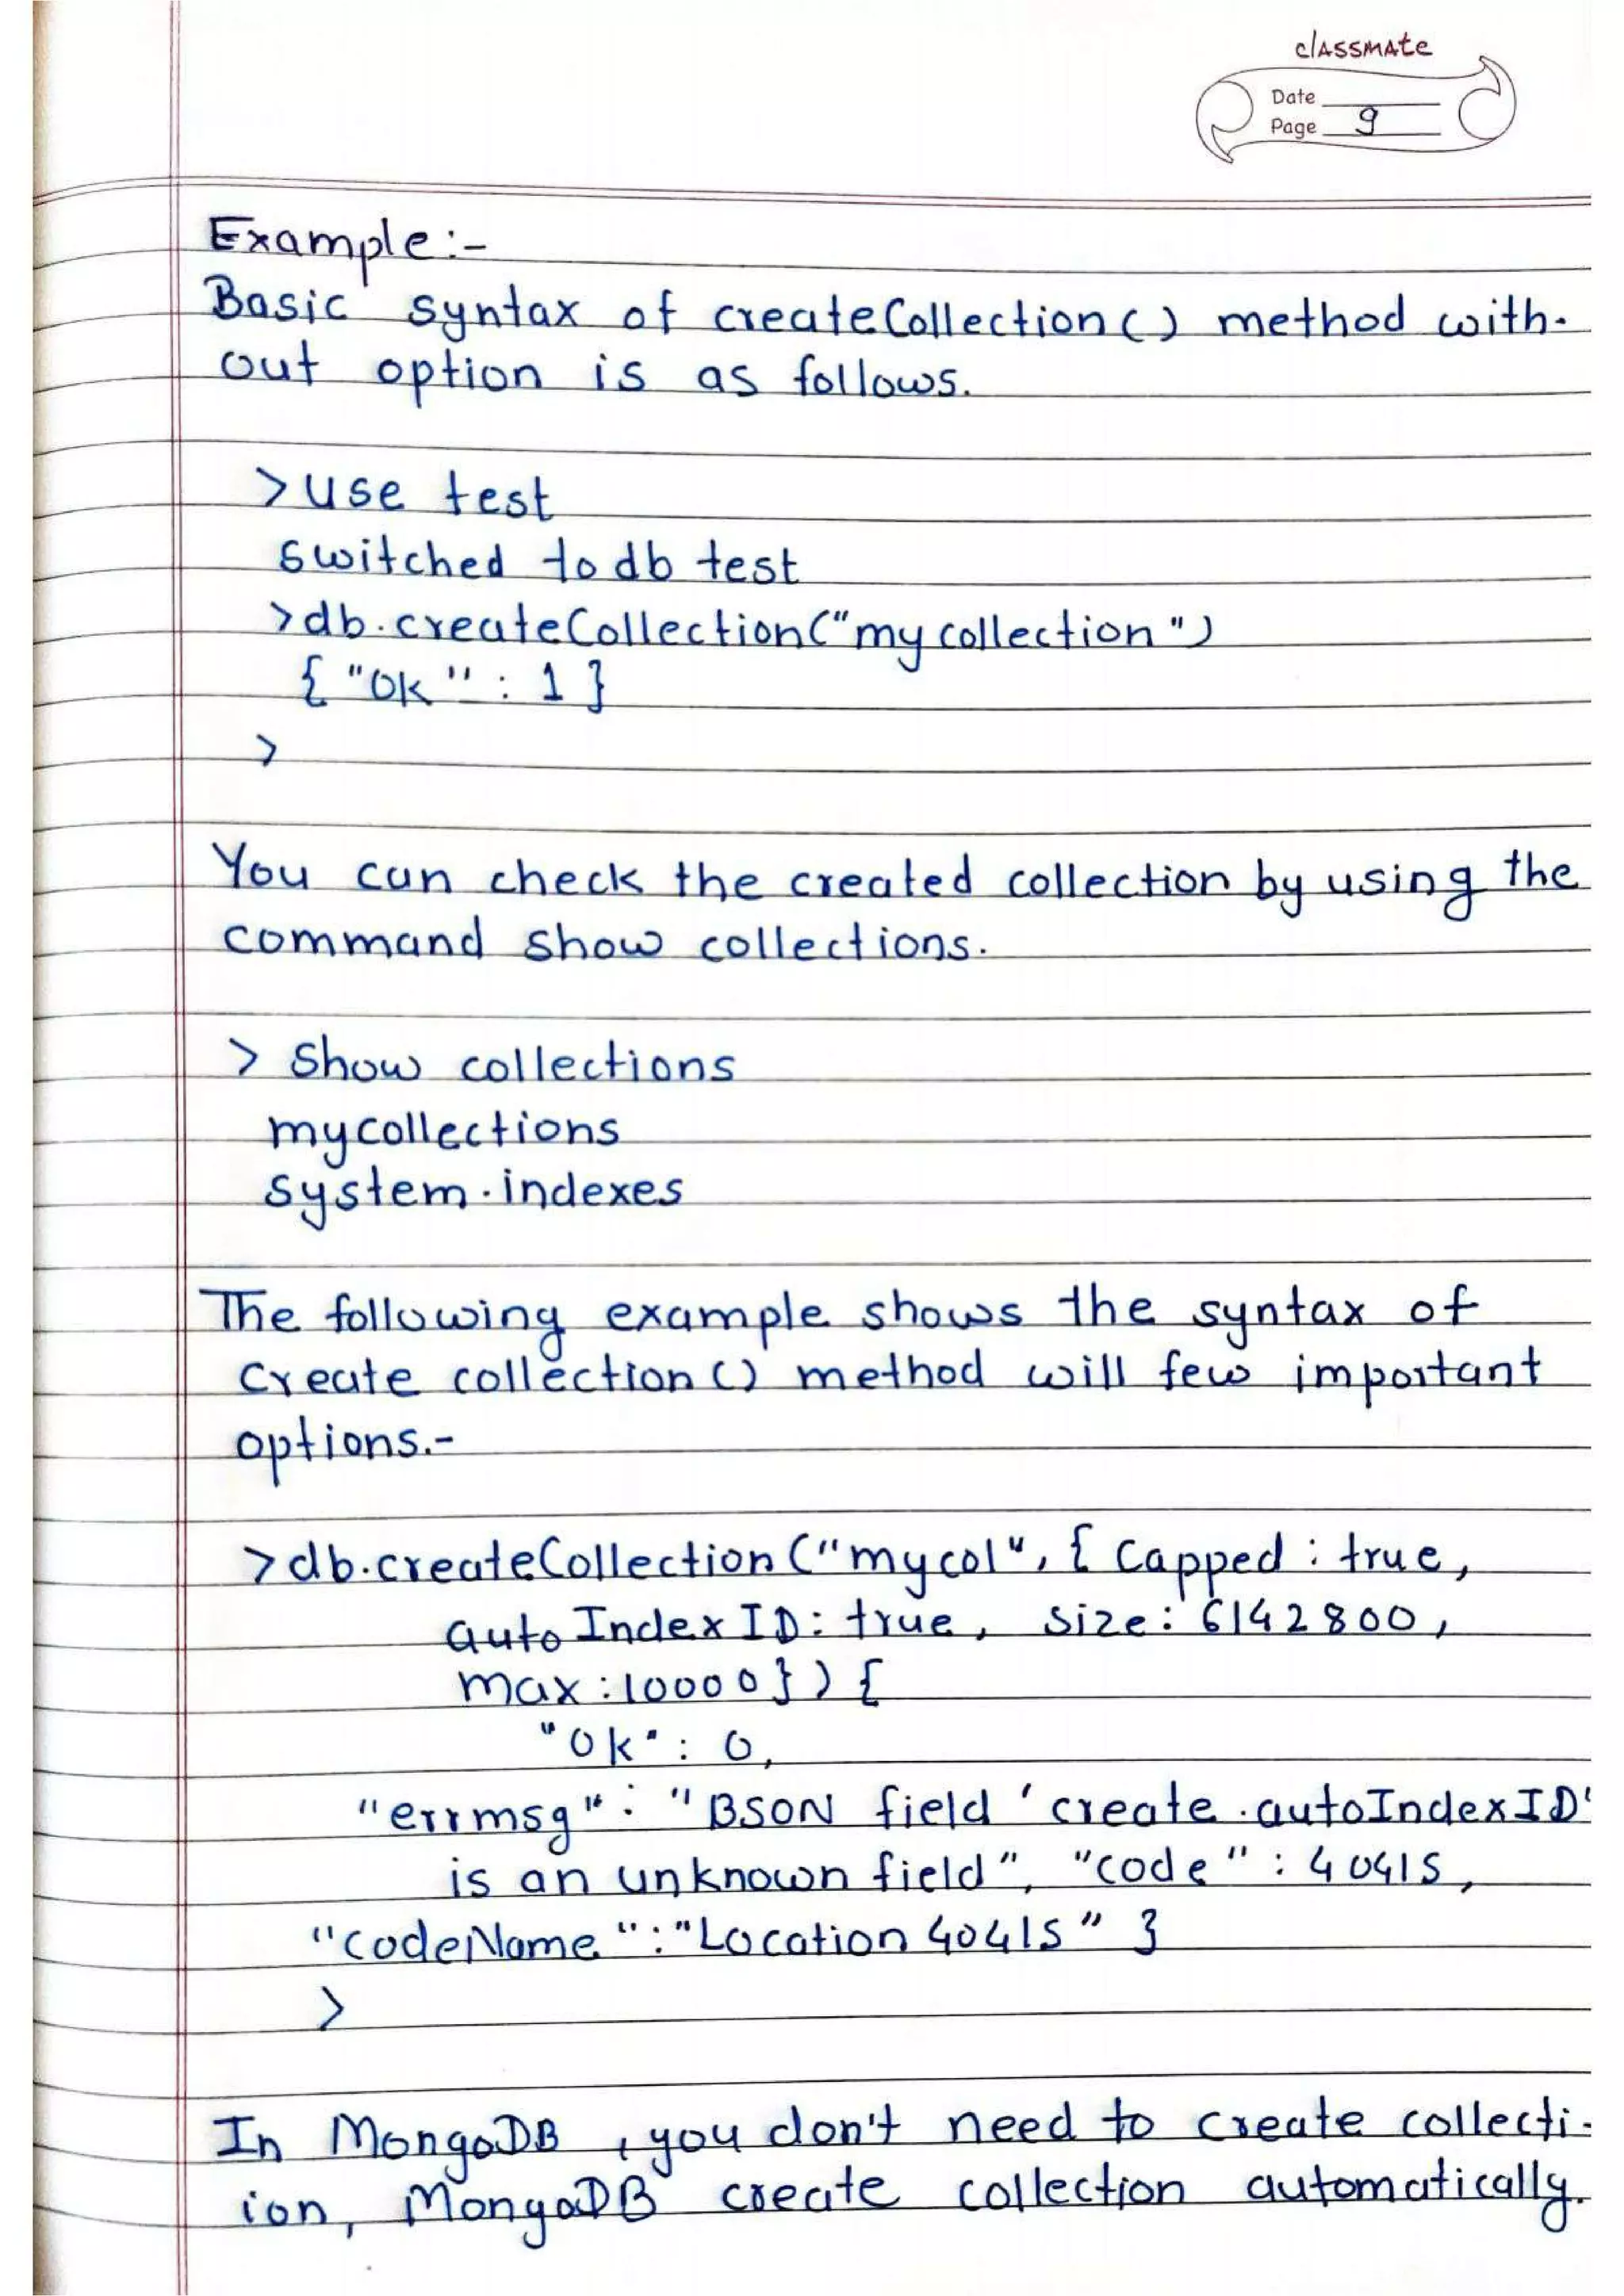 classmate
Date
Page 9
Example:-
Basic syntax of createCollection() method with-
out option is as follows.
>use test
switched to db test
>db.createCollection("mycollection")
{ "ok" : 1 }
>
You can check the created collection by using the
command show collections.
> show collections
mycollections
system.indexes
The following example shows the syntax of
Create collection() method will few important
options.-
>db.createCollection("mycol", { capped : true,
autoIndexID: true, size: 6142800,
max:10000 } ) {
"ok": 0,
"errmsg": "BSON field 'create.autoIndexID'
is an unknown field", "code" : 40415,
"codeName":"Location 40415" }
>
In MongoDB, you don't need to create collecti-
ion, MongoDB create collection automatically.